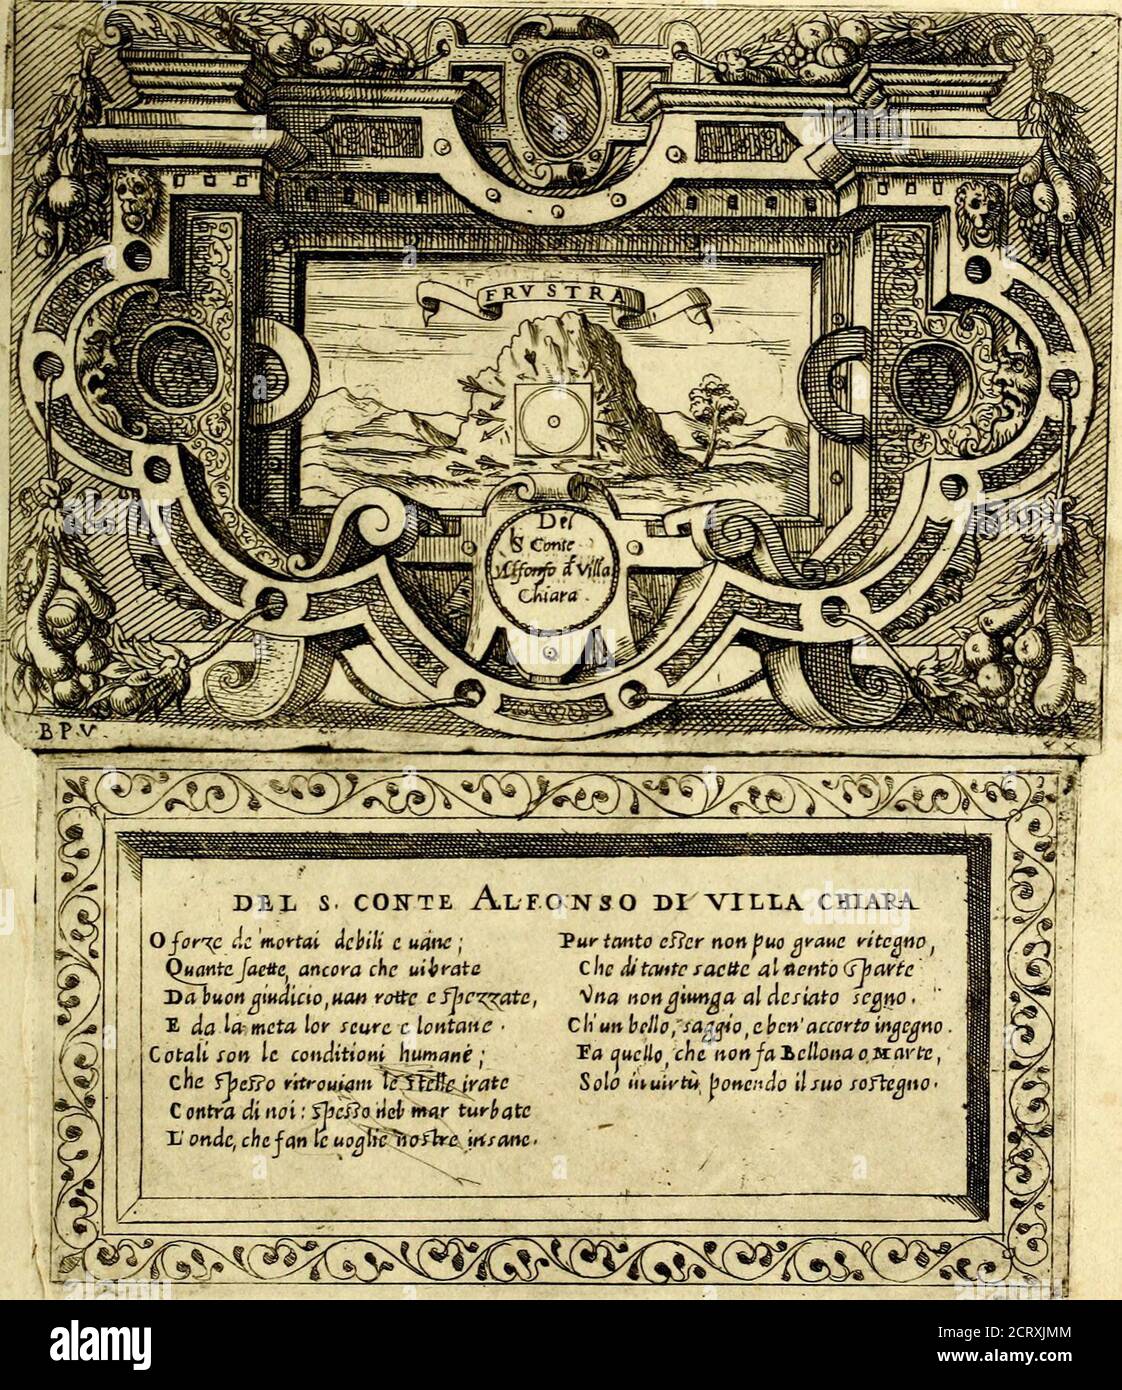 FRVSTRA
Del
S Conte
Alfonso d Villa
Chiara.
B P V.
DEL S. CONTE ALFONSO DI VILLA CHIARA
O forze de' mortai debili e uane;
Quante saette, ancora che uibrate
Da buon giudicio, uan rotte e spezzate,
E da la meta lor scure e lontane.
Cotali son le conditioni humane;
Che spesso ritrouiam le stelle irate
Contra di noi: spesso nel mar turbate
L'onde, che fan le uoglie nostre insane.
Pur tanto esser non puo graue ritegno,
Che di tante saette al uento sparte
Vna non giunga al desiato segno.
Ch'un bello, saggio, e ben' accorto ingegno.
Fa quello, che non fa Bellona o Marte,
Solo in uirtù, ponendo il suo sostegno.
alamy
Image ID: 2CRXJMM
www.alamy.com